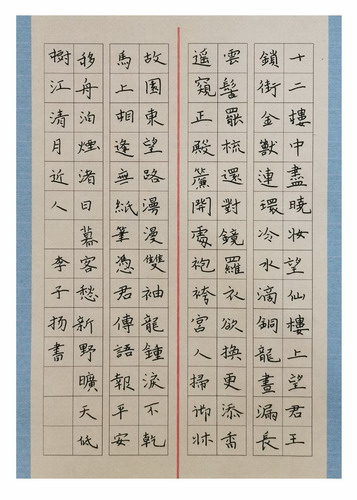 十二樓中盡曉妝望仙樓上望君王
鎖銜金獸連環冷水滴銅龍晝漏長
雲髻罷梳還對鏡羅衣欲換更添香
遙窺正殿簾開處袍袴宮人掃御牀
故園東望路漫漫雙袖龍鍾淚不乾
馬上相逢無紙筆憑君傳語報平安
移舟泊煙渚日暮客愁新野曠天低
樹江清月近人 李子揚書